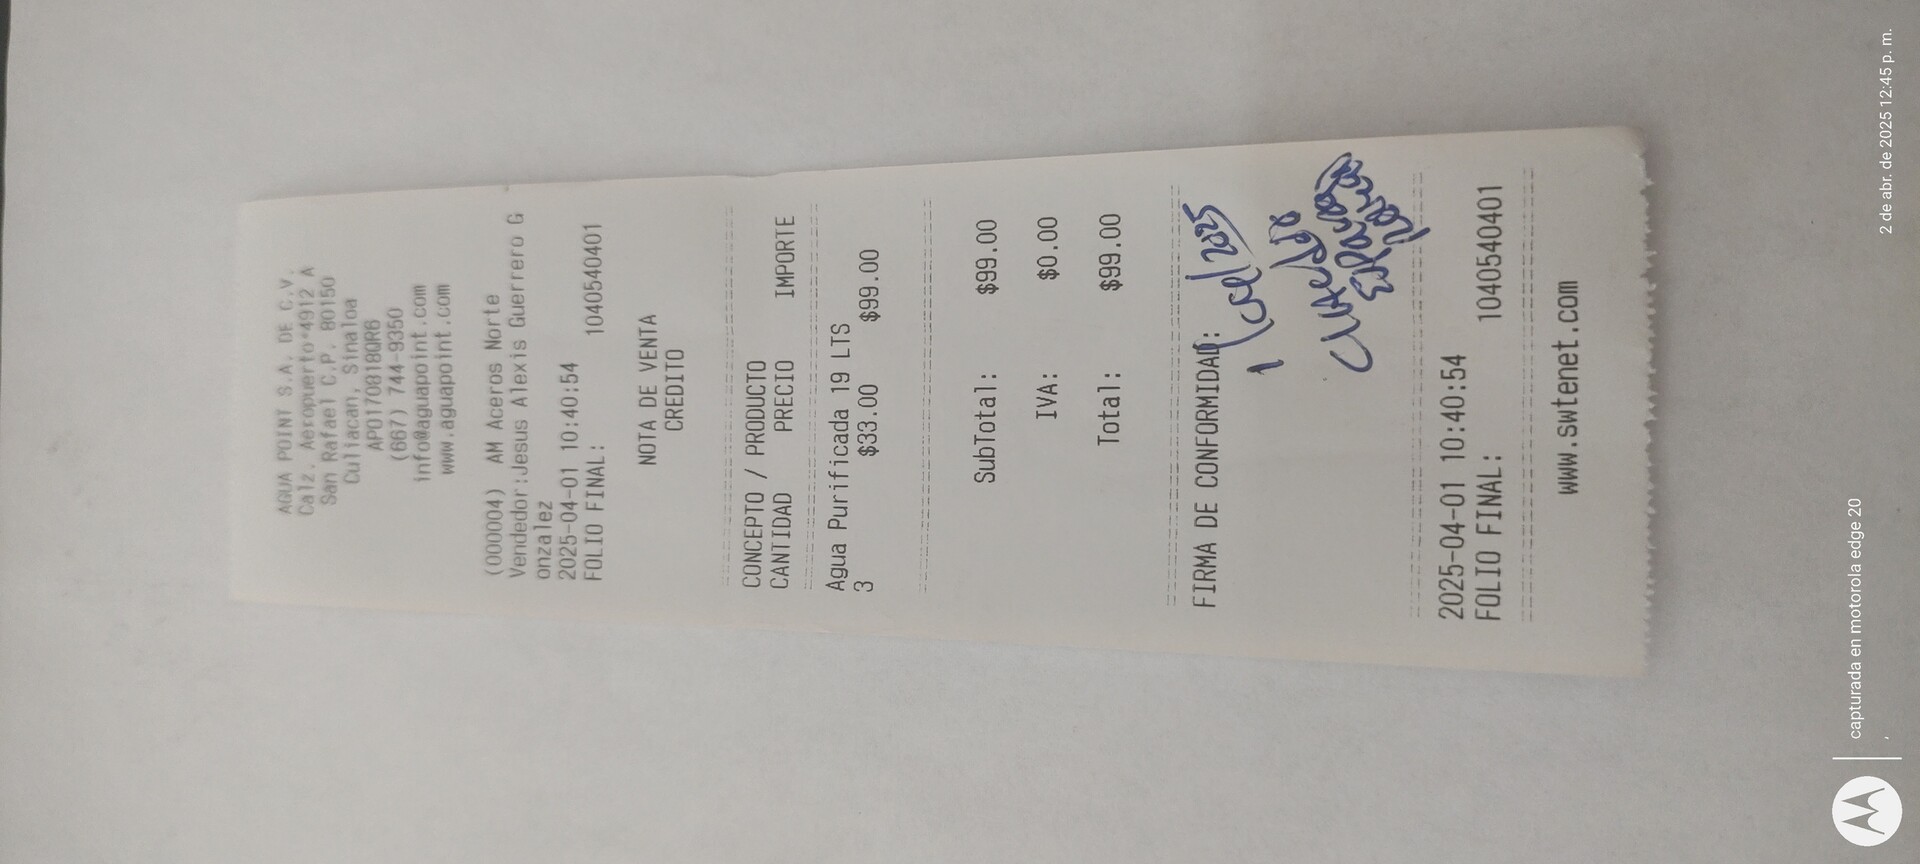 AGUA POINT S.A. DE C.V.
Calz. Aeropuerto*4912 A
San Rafael C.P. 80150
Culiacan, Sinaloa
APO170818QR6
(667) 744-9350
info@aguapoint.com
www.aguapoint.com
(000004) AM Aceros Norte
Vendedor:Jesus Alexis Guerrero G
onzalez
2025-04-01 10:40:54
FOLIO FINAL: 1040540401
NOTA DE VENTA
CREDITO
CONCEPTO / PRODUCTO
CANTIDAD PRECIO IMPORTE
Agua Purificada 19 LTS
3 $33.00 $99.00
SubTotal: $99.00
IVA: $0.00
Total: $99.00
FIRMA DE CONFORMIDAD:
2025-04-01 10:40:54
FOLIO FINAL: 1040540401
www.swtenet.com
capturada en motorola edge 20
2 de abr. de 2025 12:45 p. m.